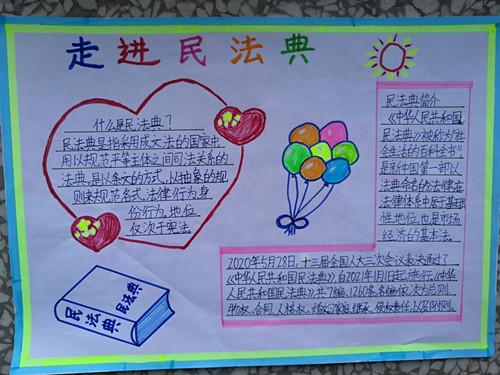 走进民法典
什么是民法典？
民法典是指采用成文法的国家中,
用以规范平等主体之间司法关系的
法典,是以条文的方式,以抽象的规
则来规范各式法律行为身
份行为,地位
仅次于宪法
民法典简介
《中华人民共和国
民法典》被称为"社
会生活的百科全书"
是新中国第一部以
法典命名的法律,在
法律体系中居于基础
性地位,也是市场
经济的基本法。
2020年5月28日,十三届全国人大三次会议表决通过了
《中华人民共和国民法典》,自2021年1月1日起施行。《中华
人民共和国民法典》共7编、1260条,各编依次为总则、
物权、合同、人格权、婚姻家庭、继承、侵权责任,以及附则。
民法典
民法典